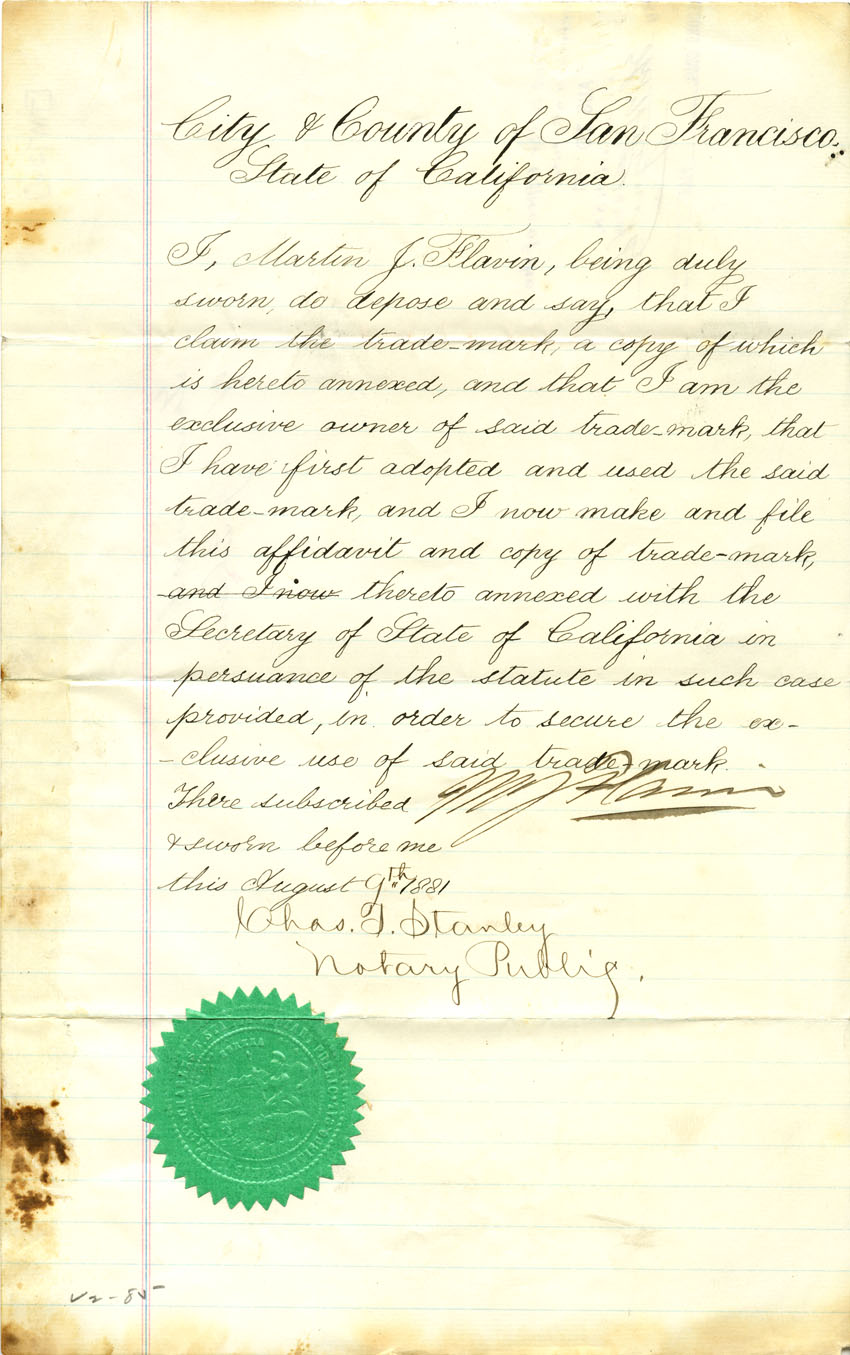 City & County of San Francisco.
State of California.
I, Martin J. Flavin, being duly
sworn, do depose and say, that I
claim the trade-mark, a copy of which
is hereto annexed, and that I am the
exclusive owner of said trade-mark, that
I have first adopted and used the said
trade-mark, and I now make and file
this affidavit and copy of trade-mark,
and I now thereto annexed with the
Secretary of State of California in
persuance of the statute in such case
provided, in order to secure the ex-
-clusive use of said trade-mark.
There subscribed M J Flavin
& sworn before me
this August 9th 1881
Chas. T. Stanley
Notary Public.